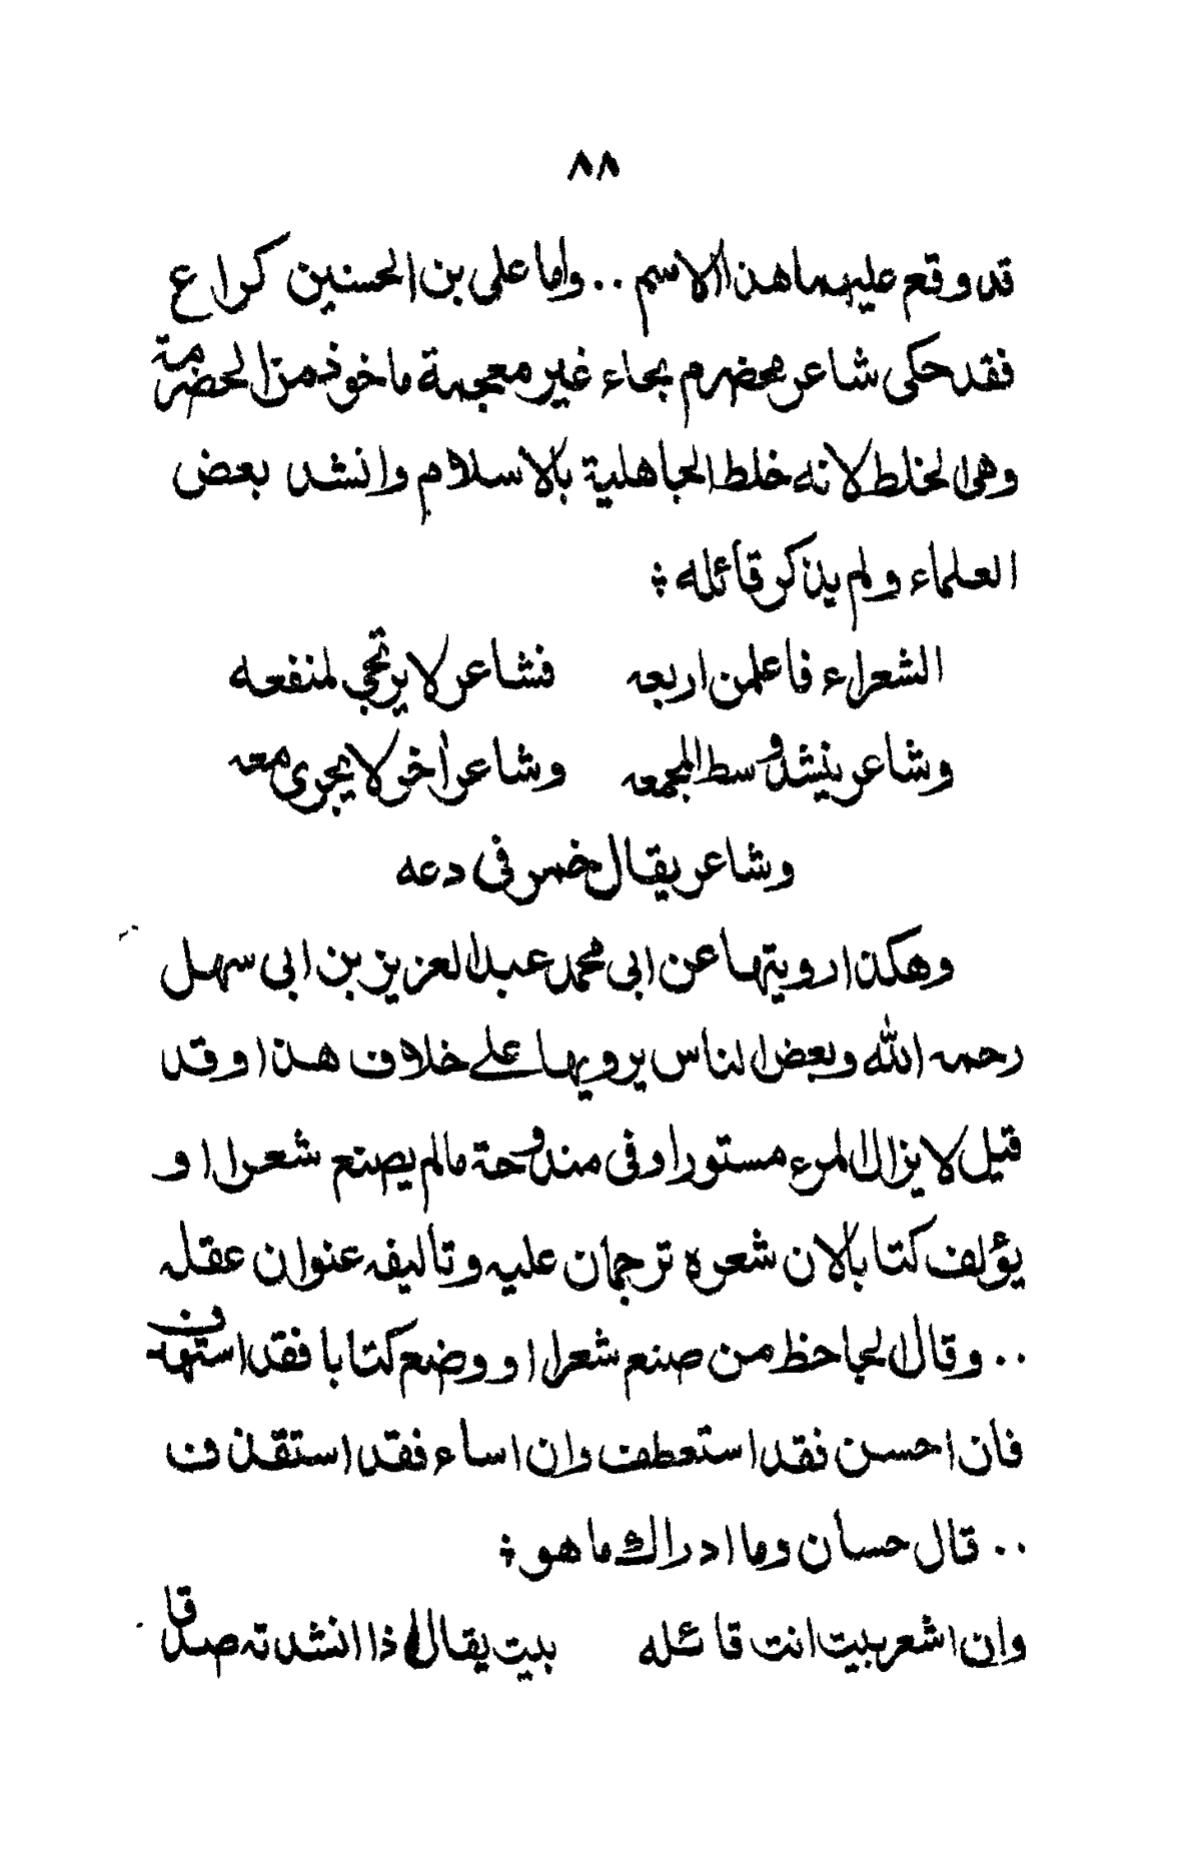 ٨٨
قد وقع عليهما هذا الاسم .. واما على بن الحسنين كراع
فقد حكى شاعر محضرم بحاء غير معجمة ماخوذ من الحضرمة
وهى الخلط لانه خلط الجاهلية بالاسلام وانشد بعض
العلماء ولم يذكر قائله
الشعراء فاعلمن اربعه فشاعر لا يرتجي لمنفعه
وشاعر ينشد وسط المجمعه وشاعر آخر لا يجرى معه
وشاعر يقال خمر فى دعه
وهكذا رويتها عن ابى محمد عبد العزيز بن ابى سهل
رحمه الله وبعض الناس يرويها على خلاف هذا وقد
قيل لا يزال المرء مستورا وفى مندوحة مالم يصنع شعرا او
يؤلف كتابا لان شعره ترجمان عليه وتأليفه عنوان عقله
.. وقال الجاحظ من صنع شعرا او وضع كتابا فقد استهدف
فان احسن فقد استعطف وان اساء فقد استقذف
.. قال حسان وما ادراك ما هو
وان اشعر بيت انت قائله بيت يقال اذا انشدته صدقا